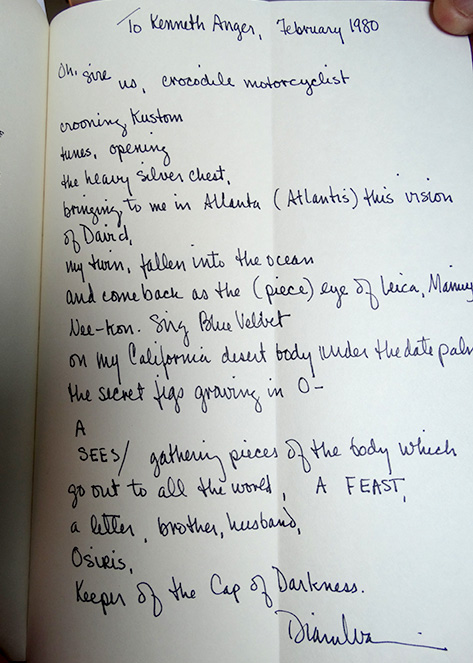 To Kenneth Anger, February 1980
Oh, sire us, crocodile motorcyclist
crooning Kustom
tunes, opening
the heavy silver chest,
bringing to me in Atlanta (Atlantis) this vision
of David,
my twin, fallen into the ocean
and come back as the (piece) eye of Leica,
Nee-kon. Sing Blue Velvet
on my California desert body under the date palm
the secret figs growing in O-
A
SEES/ gathering pieces of the body which
go out to all the world, A FEAST,
a letter, brother, husband,
Osiris,
Keeper of the Cap of Darkness.